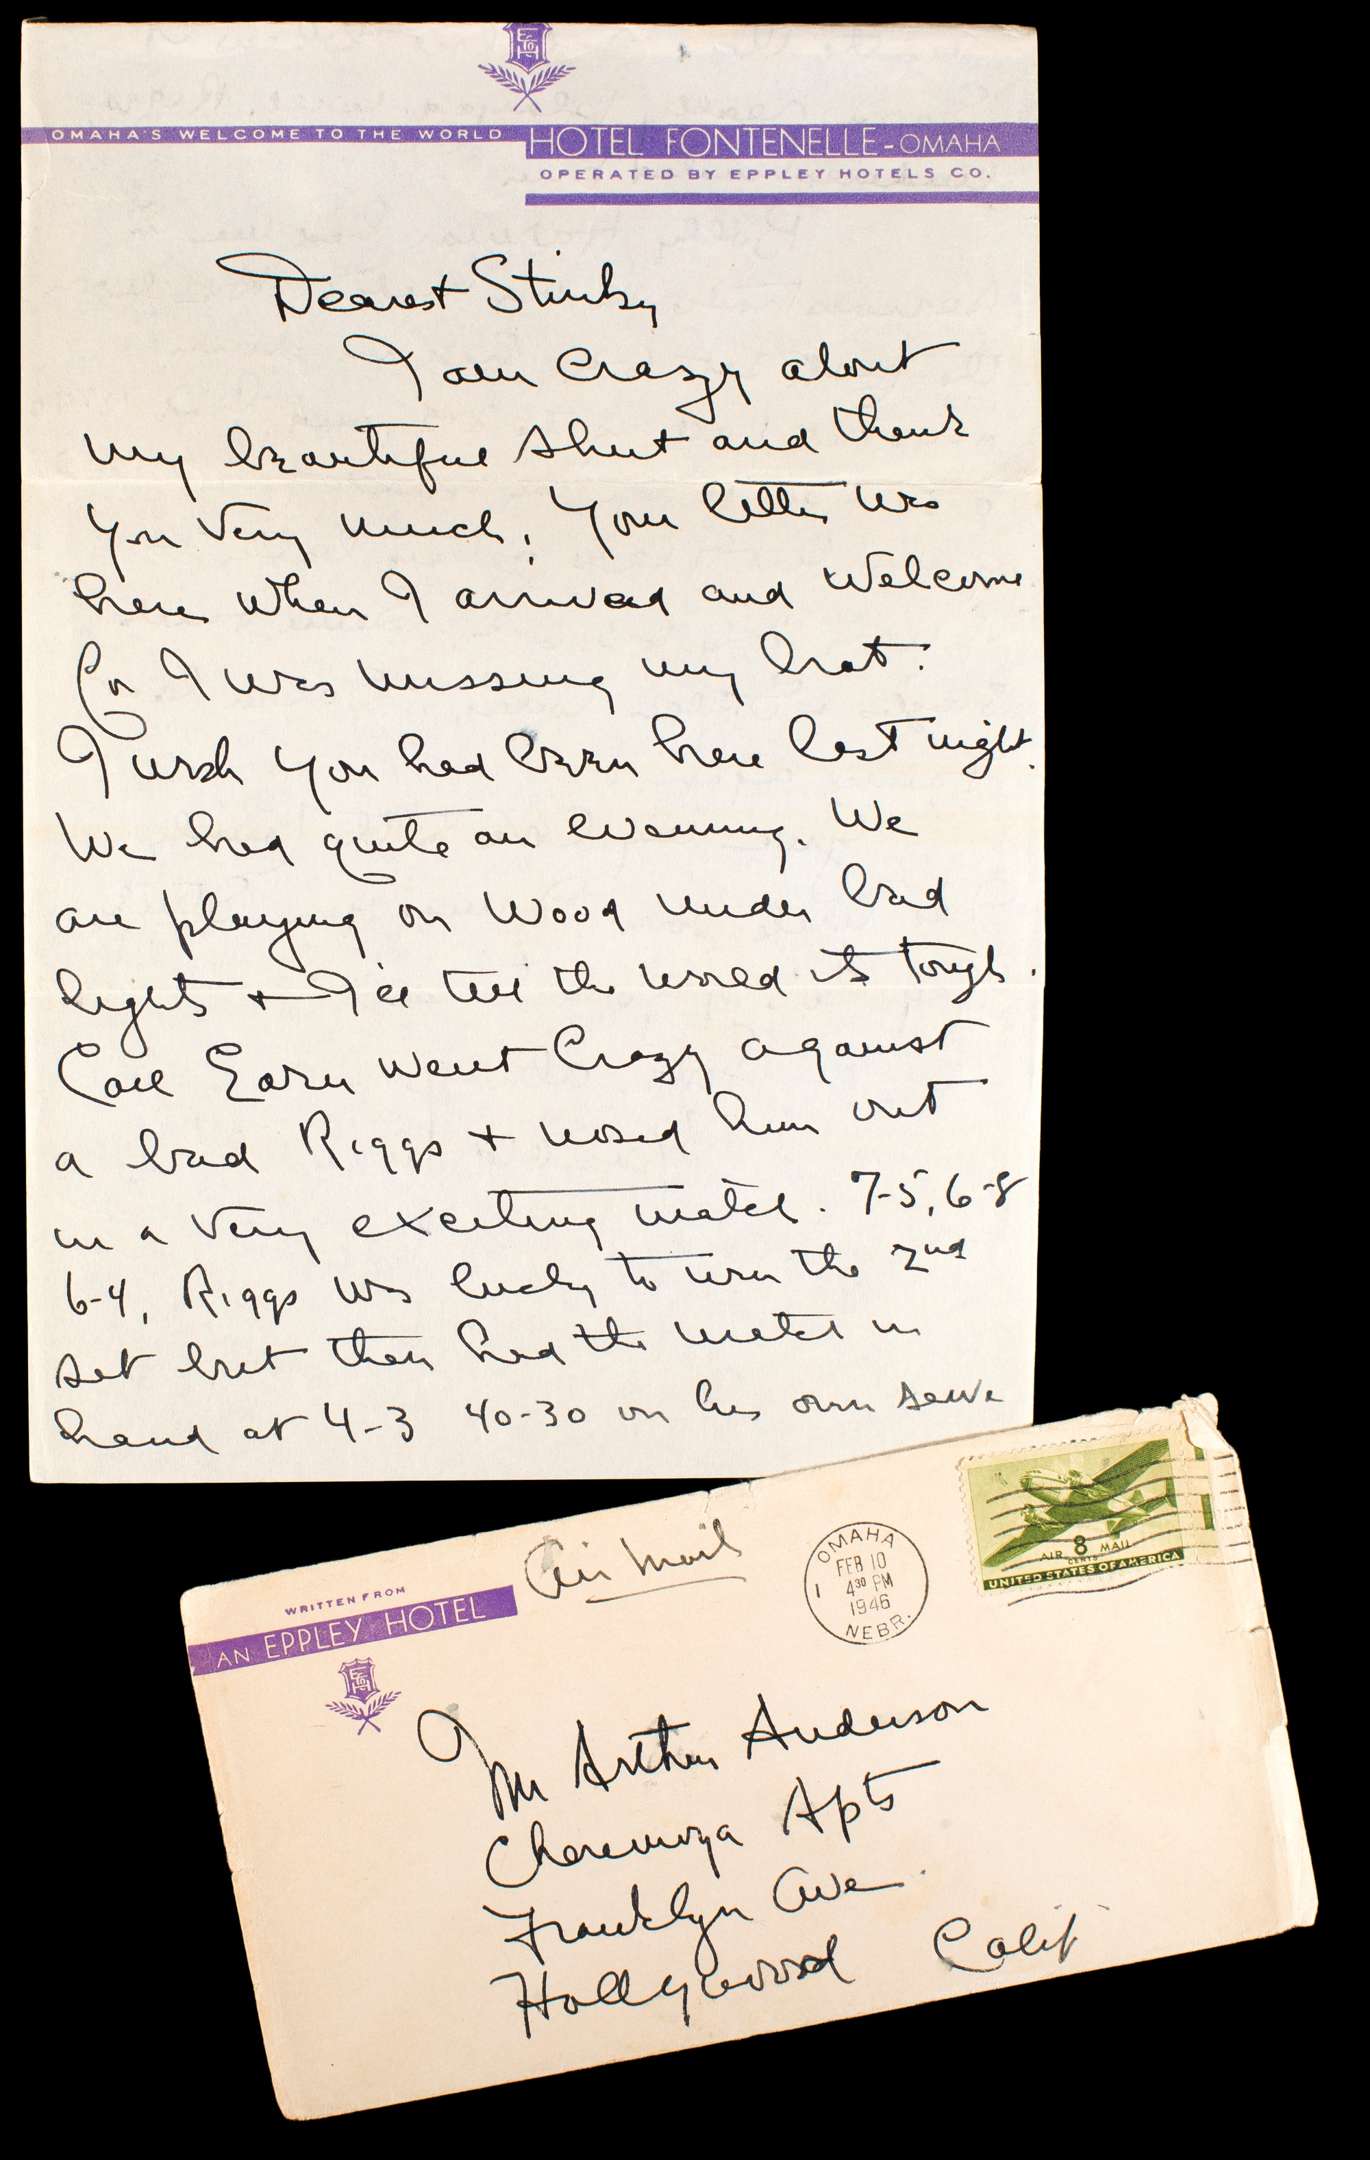 OMAHA'S WELCOME TO THE WORLD
HOTEL FONTENELLE - OMAHA
OPERATED BY EPPLEY HOTELS CO.
Dearest Stinky
I am crazy about
my beautiful shirt and thank
you very much. Your letter was
here when I arrived and welcome
for I was missing my brat.
I wish you had been here last night.
We had quite an evening. We
are playing on wood under bad
lights + I'll tell the world its tough.
Carl Earn went crazy against
a bad Riggs + nosed him out
in a very exciting match. 7-5, 6-8
6-4, Riggs was lucky to win the 2nd
set but then had the match in
hand at 4-3 40-30 on his own serve
Air Mail
OMAHA
FEB 10
4 30 PM
1946
NEBR.
1
AIR 8 MAIL
CENTS
UNITED STATES OF AMERICA
WRITTEN FROM
AN EPPLEY HOTEL
Mr Arthur Anderson
Cheremoya Apts
Franklyn Ave
Hollywood Calif